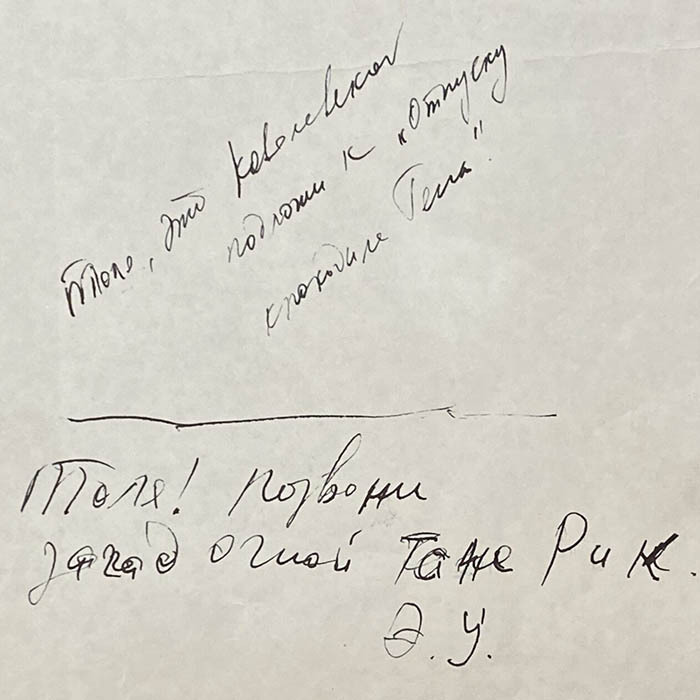 Толе, это Ковалевской
подложи к „Отпуску
крокодила Гена".
Толя! позвони
загадочной Тане Рик.
Э.У.